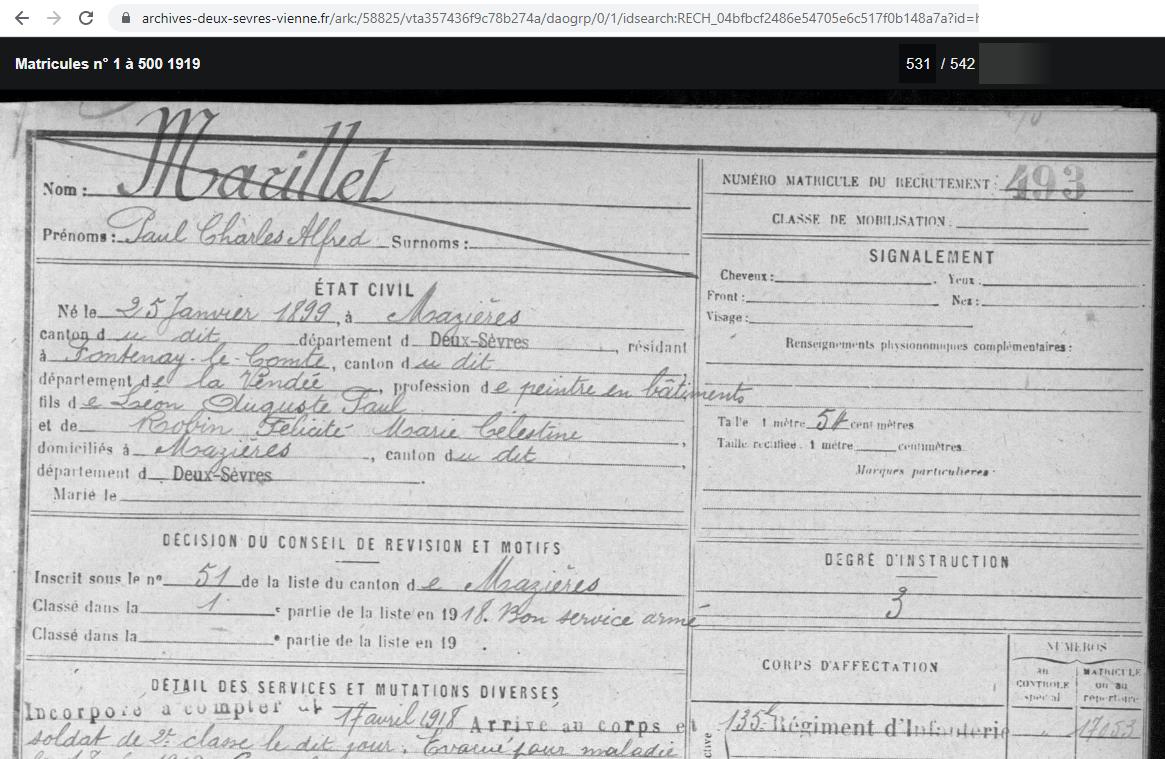 archives-deux-sevres-vienne.fr/ark:/58825/vta357436f9c78b274a/daogrp/0/1/idsearch:RECH_04bfbcf2486e54705e6c517f0b148a7a?id=h
Matricules n° 1 à 500 1919
531 / 542
Nom :
Prénoms : Paul Charles Alfred Surnoms :
NUMÉRO MATRICULE DU RECRUTEMENT : 493
CLASSE DE MOBILISATION :
ÉTAT CIVIL
Né le 25 Janvier 1899, à Mazières
canton du dit département d Deux-Sèvres, résidant
à Fontenay-le-Comte, canton du dit
département de la Vendée, profession de peintre en bâtiments
fils de Léon Auguste Paul
et de Robin Félicité Marie Célestine,
domiciliés à Mazières, canton du dit,
département d Deux-Sèvres.
Marié le
SIGNALEMENT
Cheveux : . Yeux : .
Front : Nez :
Visage :
Renseignements physionomiques complémentaires :
Taille 1 mètre 54 centimètres
Taille rectifiée : 1 mètre centimètres
Marques particulières :
DÉCISION DU CONSEIL DE REVISION ET MOTIFS
Inscrit sous le n° 51 de la liste du canton de Mazières
Classé dans la 1 e partie de la liste en 1918. Bon service armé
Classé dans la e partie de la liste en 19 .
DEGRÉ D'INSTRUCTION
3
DÉTAIL DES SERVICES ET MUTATIONS DIVERSES
Incorporé à compter du 17 avril 1918 Arrivé au corps et
soldat de 2e classe le dit jour. Evacué pour maladie
CORPS D'AFFECTATION
NUMÉROS
au CONTRÔLE spécial
MATRICULE ou au répertoire
135e Régiment d'Infanterie 17053